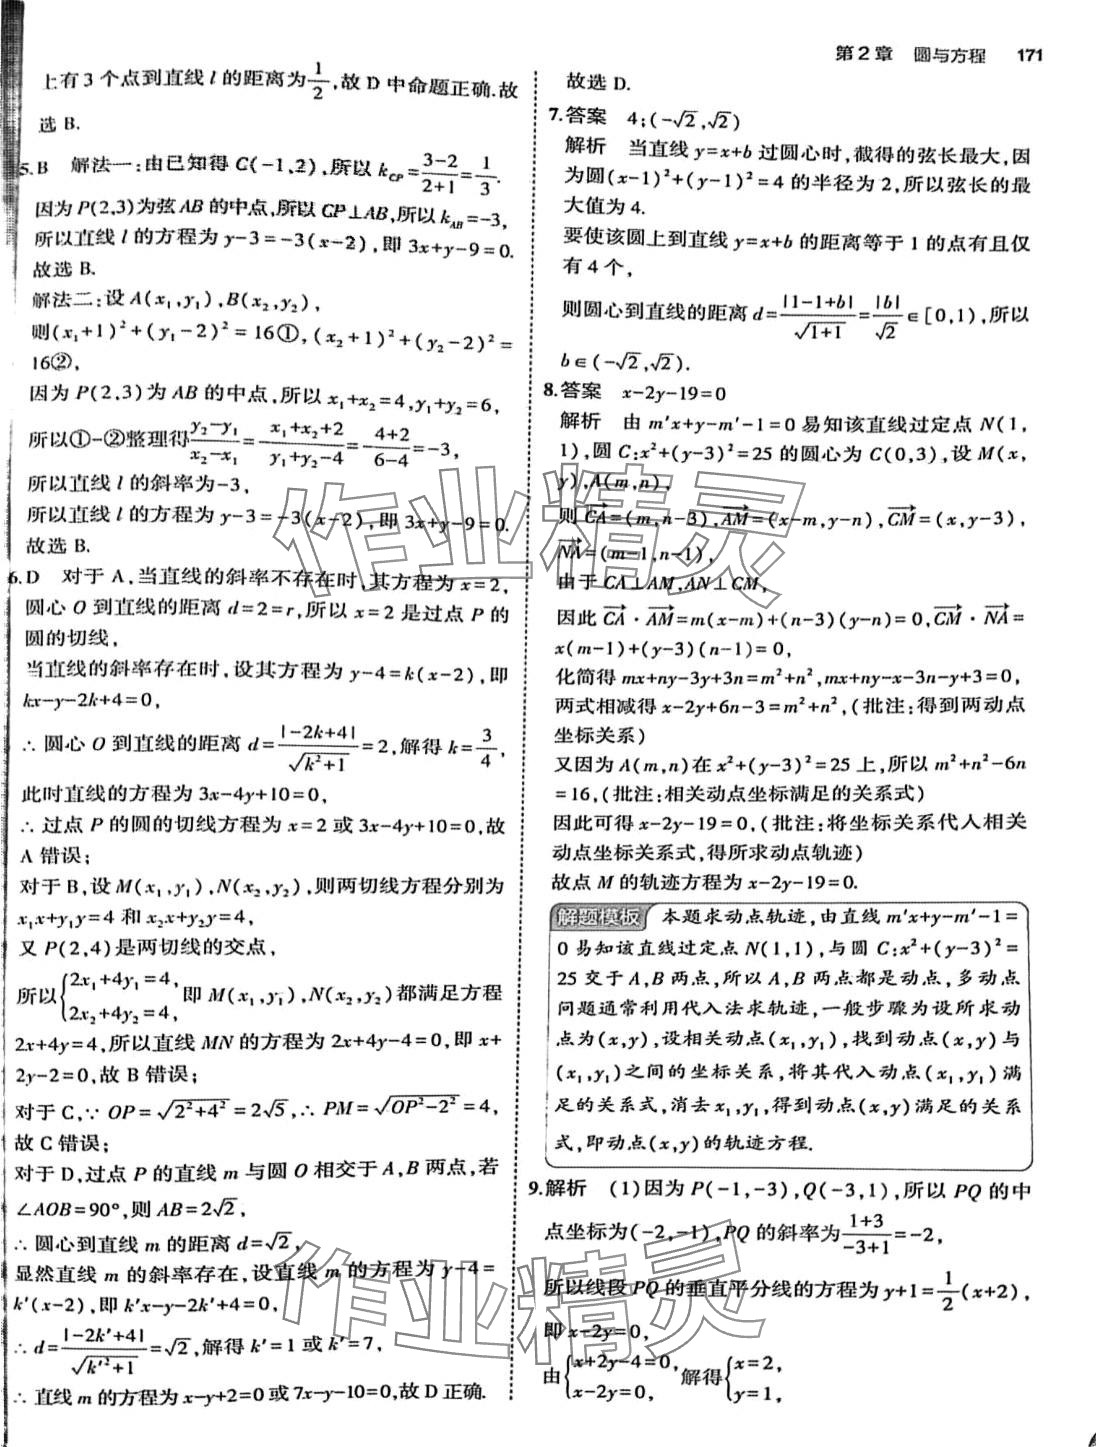 第2章 圆与方程 171
上有3个点到直线l的距离为1/2,故D中命题正确.故
选B.
5.B 解法一:由已知得C(-1,2),所以k_CP=(3-2)/(2+1)=1/3.
因为P(2,3)为弦AB的中点,所以CP⊥AB,所以k_AB=-3,
所以直线l的方程为y-3=-3(x-2),即3x+y-9=0.
故选B.
解法二:设A(x₁,y₁),B(x₂,y₂),
则(x₁+1)²+(y₁-2)²=16①,(x₂+1)²+(y₂-2)²=
16②,
因为P(2,3)为AB的中点,所以x₁+x₂=4,y₁+y₂=6,
所以①-②整理得(y₂-y₁)/(x₂-x₁)=-(x₁+x₂+2)/(y₁+y₂-4)=-(4+2)/(6-4)=-3,
所以直线l的斜率为-3,
所以直线l的方程为y-3=-3(x-2),即3x+y-9=0.
故选B.
6.D 对于A,当直线的斜率不存在时,其方程为x=2,
圆心O到直线的距离d=2=r,所以x=2是过点P的
圆的切线,
当直线的斜率存在时,设其方程为y-4=k(x-2),即
kx-y-2k+4=0,
∴圆心O到直线的距离d=|-2k+4|/√(k²+1)=2,解得k=3/4,
此时直线的方程为3x-4y+10=0,
∴过点P的圆的切线方程为x=2或3x-4y+10=0,故
A错误;
对于B,设M(x₁,y₁),N(x₂,y₂),则两切线方程分别为
x₁x+y₁y=4和x₂x+y₂y=4,
又P(2,4)是两切线的交点,
所以{2x₁+4y₁=4, 2x₂+4y₂=4,即M(x₁,y₁),N(x₂,y₂)都满足方程
2x+4y=4,所以直线MN的方程为2x+4y-4=0,即x+
2y-2=0,故B错误;
对于C,∵OP=√(2²+4²)=2√5,∴PM=√(OP²-2²)=4,
故C错误;
对于D,过点P的直线m与圆O相交于A,B两点,若
∠AOB=90°,则AB=2√2,
∴圆心到直线m的距离d=√2,
显然直线m的斜率存在,设直线m的方程为y-4=
k′(x-2),即k′x-y-2k′+4=0,
∴d=|-2k′+4|/√(k′²+1)=√2,解得k′=1或k′=7,
∴直线m的方程为x-y+2=0或7x-y-10=0,故D正确.
故选D.
7.答案 4;(-√2,√2)
解析 当直线y=x+b过圆心时,截得的弦长最大,因
为圆(x-1)²+(y-1)²=4的半径为2,所以弦长的最
大值为4.
要使该圆上到直线y=x+b的距离等于1的点有且仅
有4个,
则圆心到直线的距离d=|1-1+b|/√(1+1)=|b|/√2∈[0,1),所以
b∈(-√2,√2).
8.答案 x-2y-19=0
解析 由m′x+y-m′-1=0易知该直线过定点N(1,
1),圆C:x²+(y-3)²=25的圆心为C(0,3),设M(x,
y),A(m,n),
则CA→=(m,n-3),AM→=(x-m,y-n),CM→=(x,y-3),
NA→=(m-1,n-1),
由于CA⊥AM,AN⊥CM,
因此CA→·AM→=m(x-m)+(n-3)(y-n)=0,CM→·NA→=
x(m-1)+(y-3)(n-1)=0,
化简得mx+ny-3y+3n=m²+n²,mx+ny-x-3n-y+3=0,
两式相减得x-2y+6n-3=m²+n²,(批注:得到两动点
坐标关系)
又因为A(m,n)在x²+(y-3)²=25上,所以m²+n²-6n
=16,(批注:相关动点坐标满足的关系式)
因此可得x-2y-19=0,(批注:将坐标关系代入相关
动点坐标关系式,得所求动点轨迹)
故点M的轨迹方程为x-2y-19=0.
解题模板 本题求动点轨迹,由直线m′x+y-m′-1=
0易知该直线过定点N(1,1),与圆C:x²+(y-3)²=
25交于A,B两点,所以A,B两点都是动点,多动点
问题通常利用代入法求轨迹,一般步骤为设所求动
点为(x,y),设相关动点(x₁,y₁),找到动点(x,y)与
(x₁,y₁)之间的坐标关系,将其代入动点(x₁,y₁)满
足的关系式,消去x₁,y₁,得到动点(x,y)满足的关系
式,即动点(x,y)的轨迹方程.
9.解析 (1)因为P(-1,-3),Q(-3,1),所以PQ的中
点坐标为(-2,-1),PQ的斜率为(1+3)/(-3+1)=-2,
所以线段PQ的垂直平分线的方程为y+1=1/2(x+2),
即x-2y=0,
由{x+2y-4=0, x-2y=0,解得{x=2, y=1,
作业精灵
作业精灵